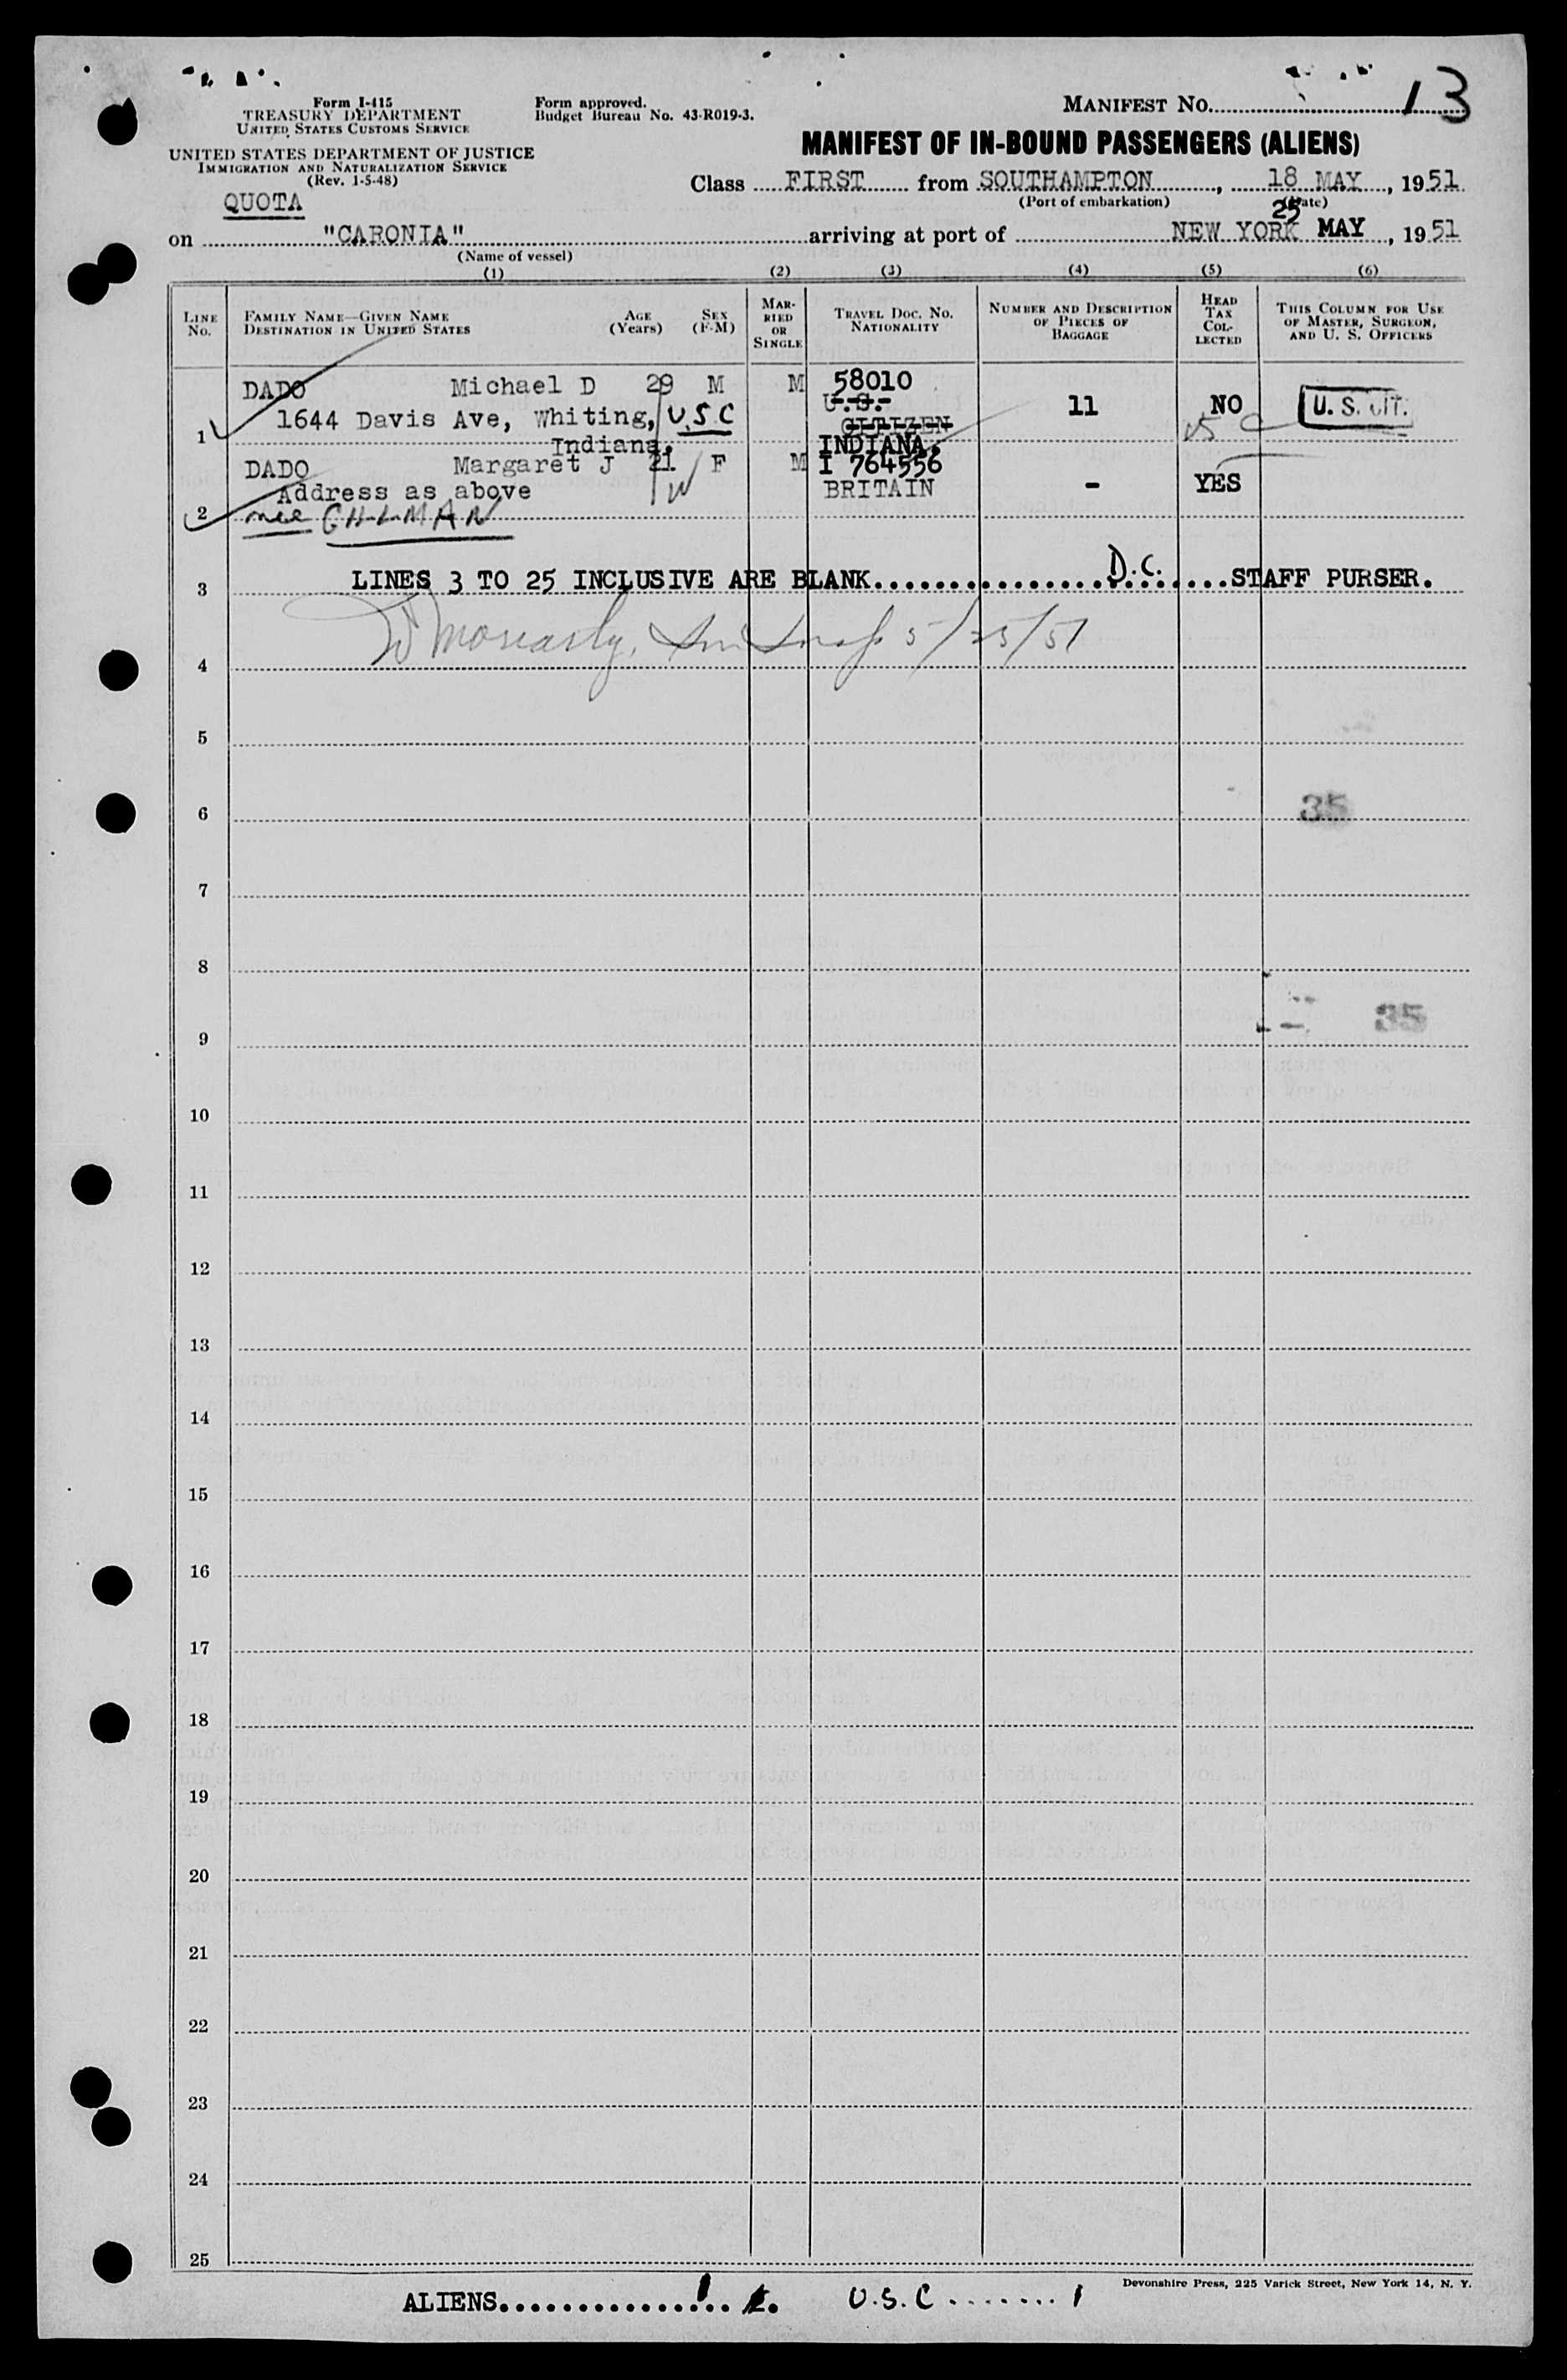 13
Form I-415
TREASURY DEPARTMENT
UNITED STATES CUSTOMS SERVICE
UNITED STATES DEPARTMENT OF JUSTICE
IMMIGRATION AND NATURALIZATION SERVICE
(Rev. 1-5-48)
Form approved.
Budget Bureau No. 43-R019-3.
MANIFEST NO.
MANIFEST OF IN-BOUND PASSENGERS (ALIENS)
Class FIRST from SOUTHAMPTON, 18 MAY, 1951
(Port of embarkation) (Date)
QUOTA
on "CARONIA" arriving at port of NEW YORK 25 MAY, 1951
(Name of vessel)
(1) (2) (3) (4) (5) (6)
LINE NO.
FAMILY NAME—GIVEN NAME
DESTINATION IN UNITED STATES
AGE (Years)
SEX (F-M)
MARRIED OR SINGLE
TRAVEL DOC. NO.
NATIONALITY
NUMBER AND DESCRIPTION OF PIECES OF BAGGAGE
HEAD TAX COLLECTED
THIS COLUMN FOR USE OF MASTER, SURGEON, AND U. S. OFFICERS
DADO Michael D 29 M M 58010
U.S.
1 1644 Davis Ave, Whiting, U.S.C CITIZEN 11 NO U. S. CIT.
Indiana. INDIANA.
DADO Margaret J 21 F M I 764556
Address as above BRITAIN - YES
2 nee
3 LINES 3 TO 25 INCLUSIVE ARE BLANK D.C. STAFF PURSER.
4 5/25/51
5
6 35
7
8
9 35
10
11
12
13
14
15
16
17
18
19
20
21
22
23
24
25
Devonshire Press, 225 Varick Street, New York 14, N. Y.
ALIENS 1 U.S.C 1